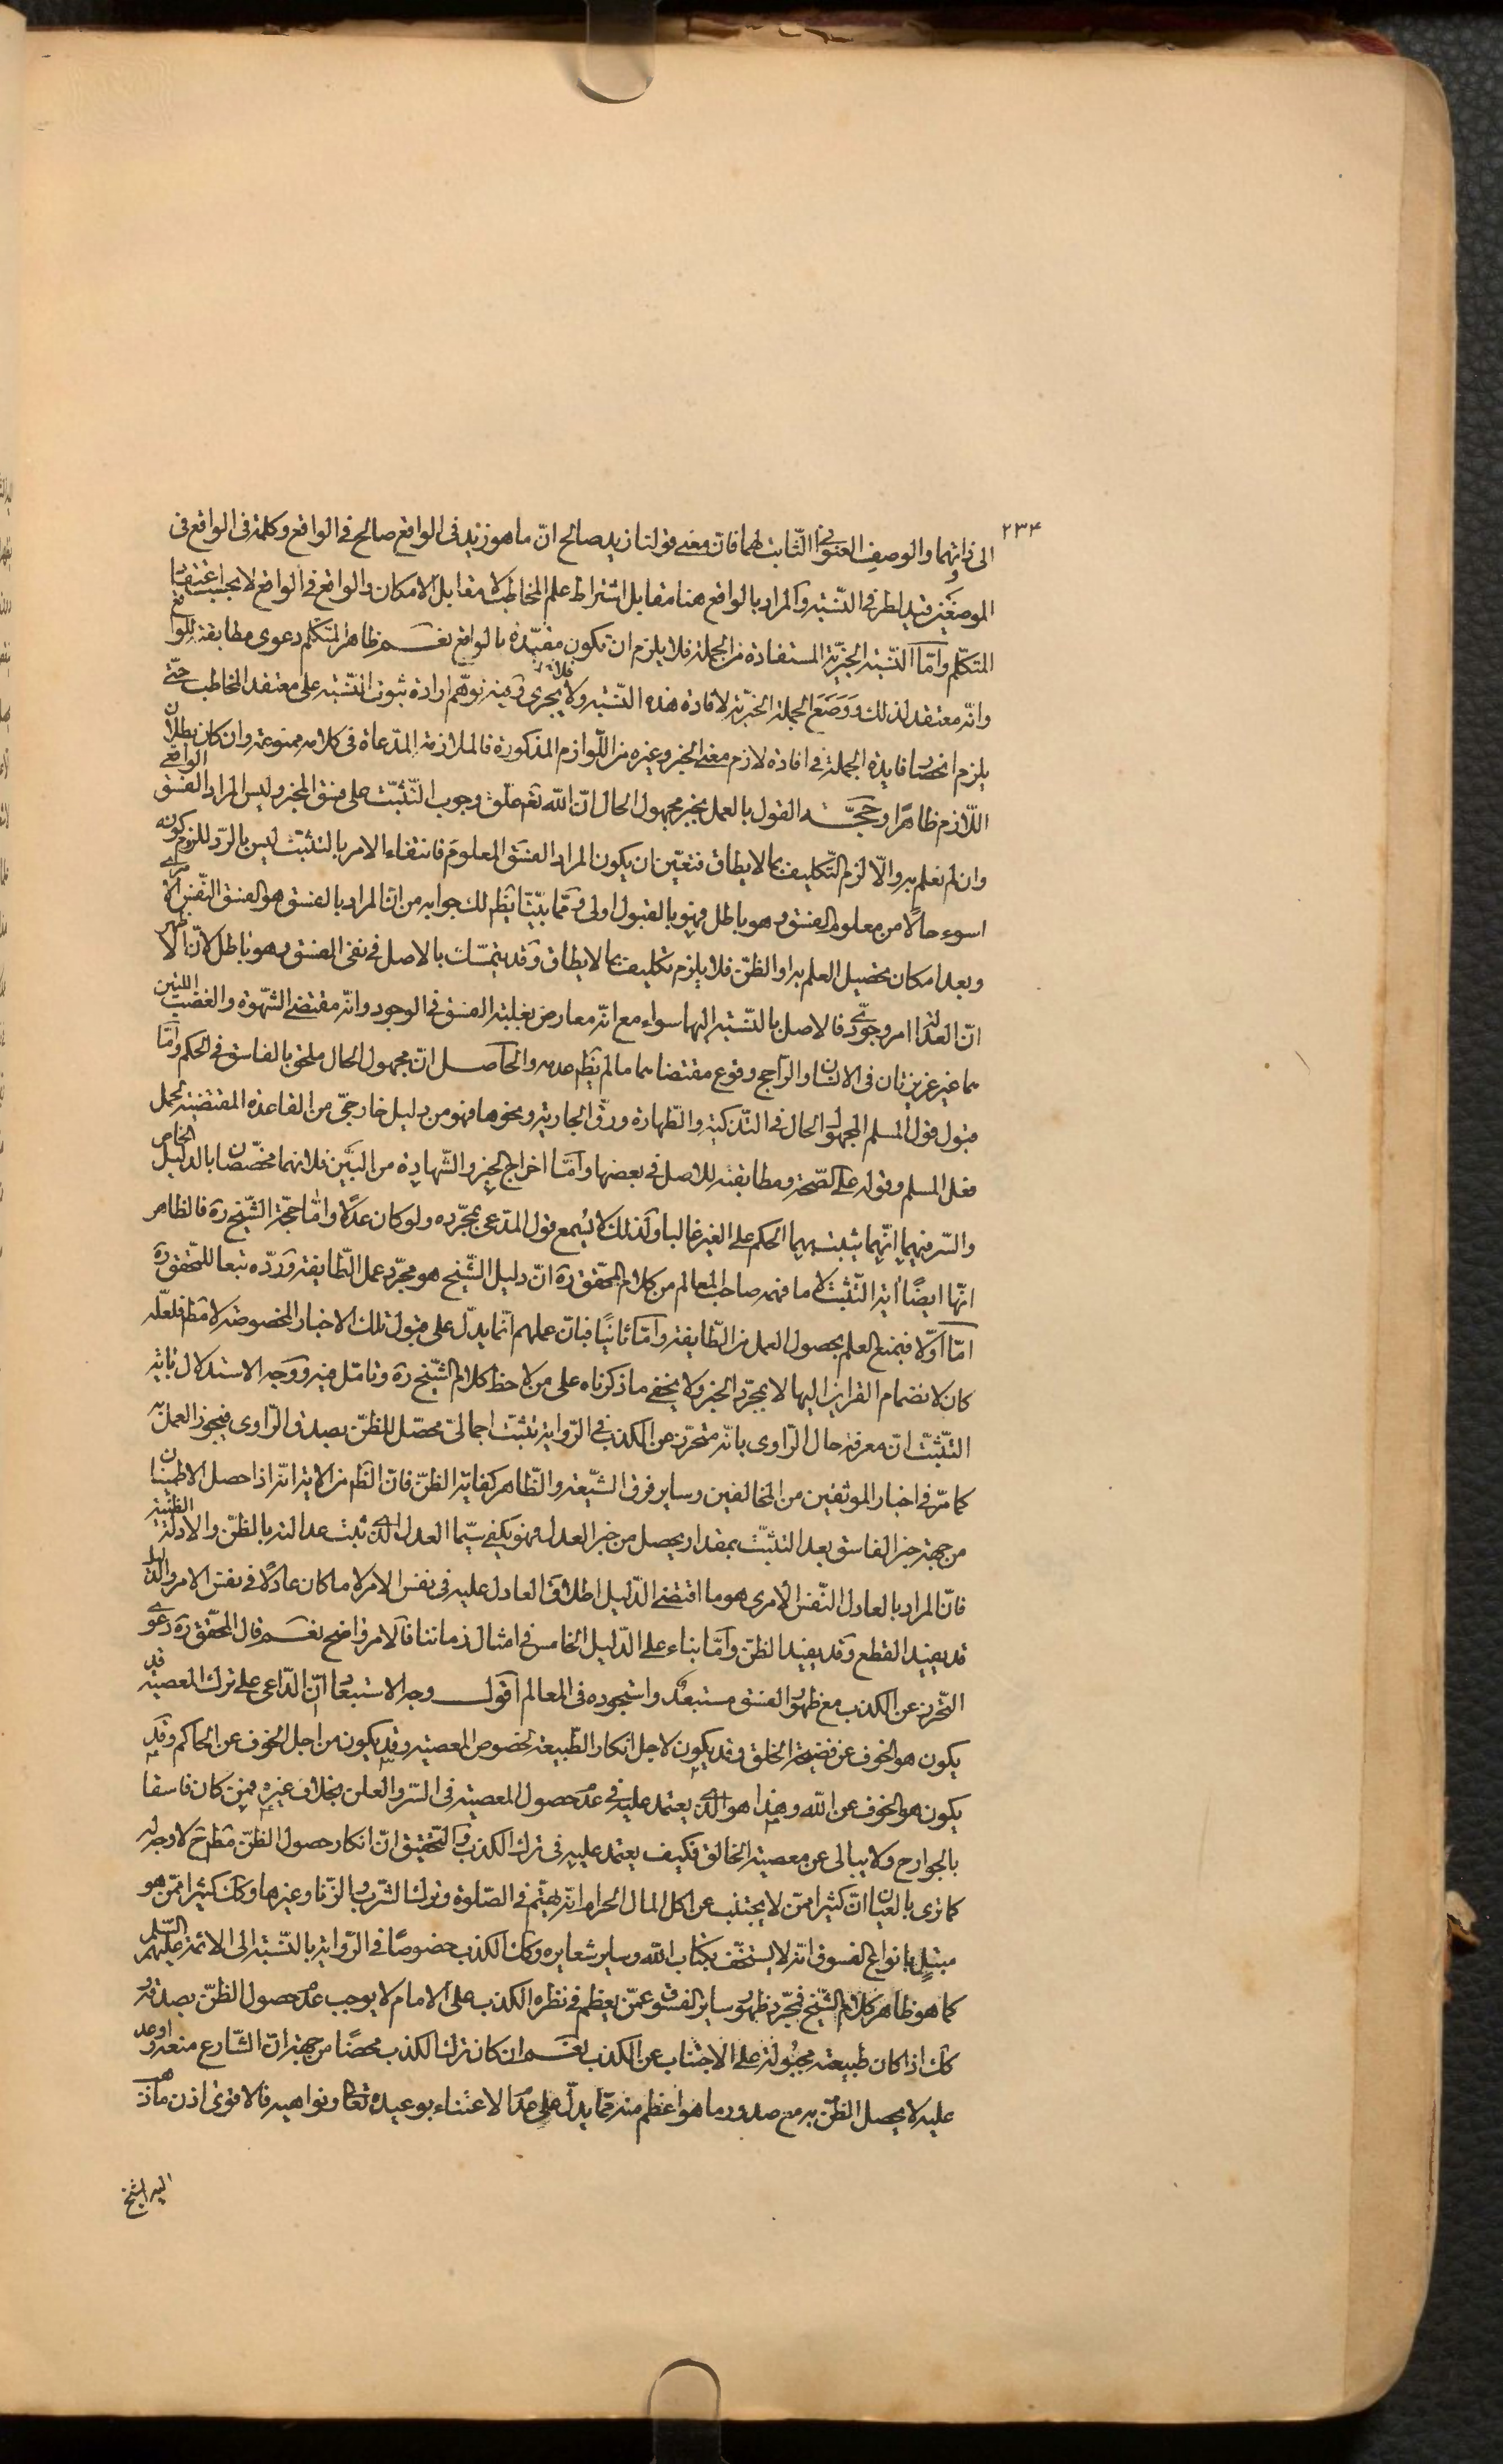 ٢٣۴
الى ذاتهما والوصف العنوانى الثّابت لهما فان معنى قولنا زيد صالح انّ ما هو زيد فى الواقع صالح فى الواقع وكلمة فى الواقع فى
الموضعين قيد لطرفى النّسبة والمراد بالواقع هنا مقابل اشتراط علم المخاطب لا مقابل الامكان والواقع فى الواقع لا بحسب اعتقاد
المتكلّم وامّا النّسبة الخبريّة المستفادة من الجملة فلا يلزم ان تكون مقيّدة بالواقع نعم ظاهر المتكلّم دعوى مطابقته للواقع
وانّه معتقد لذلك ووضع الجملة الخبريّة لافادة هذه النّسبة ولا يجرى فيه توهّم ارادة ثبوت النّسبة على معتقد المخاطب حتّى
يلزم انحصار فايدة الجملة فى افادة لازم معنى الخبر وغيره من اللّوازم المذكورة فالملازمة المدّعاة فى كلامه ممنوعة وان كان بطلان
اللّازم ظاهرا وحجّة القول بالعمل بخبر مجهول الحال انّ اللّه تعم علّق وجوب التّثبّت على فسق المخبر وليس المراد الفسق الواقعى
وان لم نعلم به والّا لزم التّكليف بما لا يطاق فتعيّن ان يكون المراد الفسق المعلوم فانتفاء الامر بالتثبت ليس بالرّد للزوم كونه
اسوء حالًا من معلوم الفسق وهو باطل فهو بالقبول اولى وممّا بيّنّا يظهر لك جوابه من انّ المراد بالفسق هو الفسق النّفس الامرى
وبعد امكان تحصيل العلم به او الظنّ فلا يلزم تكليف بما لا يطاق وقد يتمسّك بالاصل فى نفى الفسق وهو باطل لانّ الاظهر
انّ العدالة امر وجودىّ فالاصل بالنّسبة اليهما سواء مع انّه معارض بغلبة الفسق فى الوجود وانّه مقتضى الشّهوة والغضب اللتين
هما غريزتان فى الانسان والراجح وقوع مقتضاهما ما لم يظهر عدمه والحاصل انّ مجهول الحال ملحق بالفاسق فى الحكم وامّا
قبول قول المسلم المجهول الحال فى التّذكية والطّهارة ورقّ الجارية ونحوها فهو من دليل خارجىّ من القاعدة المقتضية لحمل
فعل المسلم وقوله على الصّحة ومطابقته للاصل فى بعضها وامّا اخراج الخبر والشّهادة من البَيِّن فلانهما مخصّصان بالدّليل الخاص
والسّر فيهما انّهما يثبت بهما الحكم على الغير غالبا ولذلك لا يُسمع قول المدّعى بمجرّده ولو كان عدلًا وامّا حجّة الشّيخ ره فالظاهر
انّها ايضًا آية التّثبت لا ما فهمه صاحب المعالم من كلام المحقّق ره انّ دليل الشّيخ هو مجرّد عمل الطّايفة وردّه تبعا للمحقّق ره
امّا اوّلا فبمنع العلم بحصول العمل من الطّايفة وامّا ثانيًا فبانّ عملهم انّما يدلّ على قبول تلك الاخبار المخصوصة لا مطلقا فلعلّه
كان لانضمام القراين اليها لا بمجرّد الخبر ولا يخفى ما ذكرناه على من لاحظ كلام الشّيخ ره وتامّل فيه ووجه الاستدلال باية
التّثبّت انّ معرفة حال الرّاوى بانّه متحرّز عن الكذب فى الرّواية تثبّت اجمالىّ محصّل للظنّ بصدق الرّاوى فيجوز العمل به
كما مرّ فى اخبار الموثّقين من المخالفين وساير فرق الشّيعة والظّاهر كفاية الظنّ فان الظّهر من الاية انّه اذا حصل الاطمينان
من جهة خبر الفاسق بعد التثبّت بمقدار يحصل من خبر العدل فهو يكفى سيّما العدل الّذى ثبت عدالته بالظنّ والادلّة الظنّيّة
فانّ المراد بالعادل النّفس الامرى هو ما اقتضى الدّليل اطلاق العادل عليه فى نفس الامر لا ما كان عادلًا فى نفس الامر والدّليل
قد يفيد القطع وقد يفيد الظنّ وامّا بناء على الدّليل الخامس فى امثال زماننا فالامر واضح نعم قال المحقّق ره دعوى
التّحرّز عن الكذب مع ظهور الفسق مستبعدٌ واستجوده فى المعالم اقول وجه الاستبعاد انّ الدّاعى على ترك المعصية قد
يكون هو الخوف عن فضيحة الخلق وقد يكون لاجل انكار الطّبيعة لخصوص المعصية وقد يكون من اجل الخوف عن الحاكم وقد
يكون هو الخوف عن اللّه وهذا هو الّذى يعتمد عليه فى عدم حصول المعصية فى السّر والعلن بخلاف غيره فمن كان فاسقا
بالجوارح ولا يبالى عن معصية الخالق فكيف يعتمد عليه فى ترك الكذب والتّحقيق انّ انكار حصول الظنّ مطلقا ح لا وجه له
كما ترى بالعيان انّ كثيرا ممّن لا يجتنب عن اكل المال الحرام انّه يهتمّ فى الصّلوة وترك الشّرب والزّنا وغيرها وكك كثيرا ممّن هو
مبتل بانواع الفسوق انّه لا يستخفّ بكتاب اللّه وساير شعايره وكك الكذب خصوصًا فى الرّواية بالنّسبة الى الائمّة عليهم السّلم
كما هو ظاهر كلام الشّيخ فمجرّد ظهور ساير الفسوق عمّن يعظم فى نظره الكذب على الامام لا يوجب عدم حصول الظنّ بصدقه
كك اذا كان طبيعته مجبُولة على الاجتناب عن الكذب نعم ان كان ترك الكذب محضًا من جهة انّ الشّارع منعه واوعد
عليه لا يحصل الظنّ به مع صدور ما هو اعظم منه ممّا يدلّ على عدم الاعتناء بوعيده تعالى ونواهيه فالاقوى اذن ما ذهب
اليه الشيخ